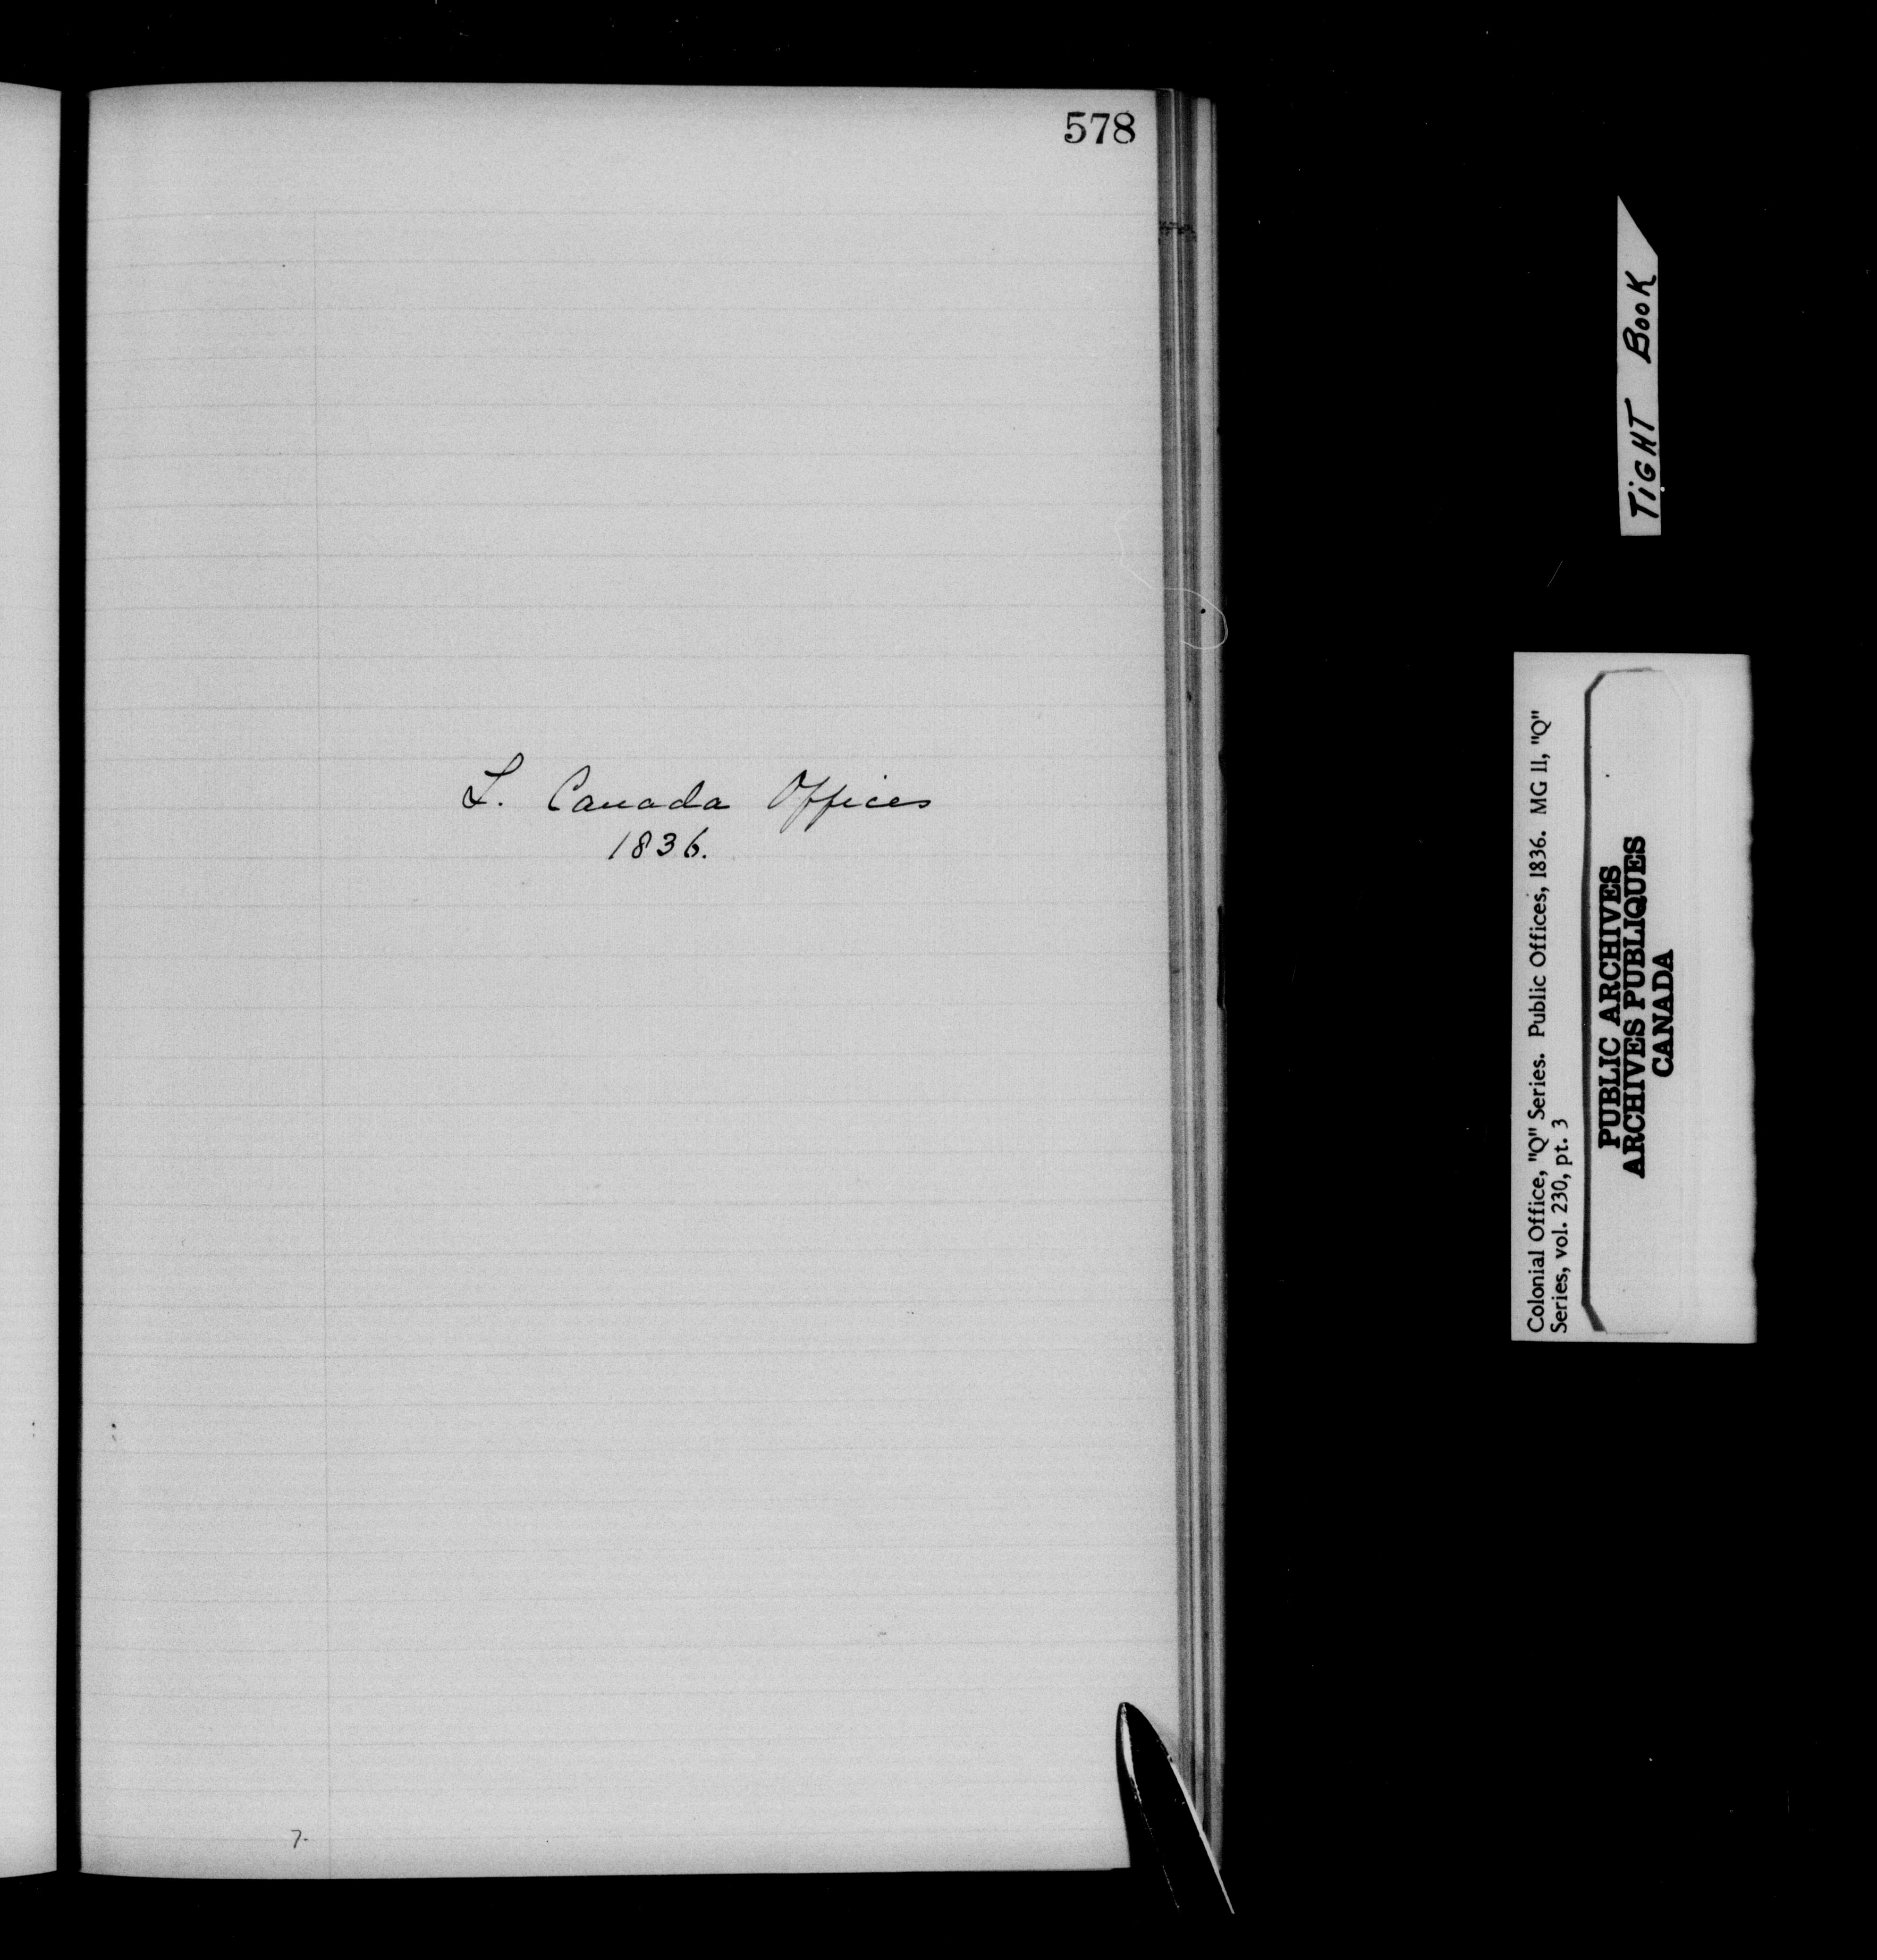 578
L. Canada Offices
1836.
7.
TiGHT BooK
Colonial Office, "Q" Series. Public Offices, 1836. MG 11, "Q"
Series, vol. 230, pt. 3
PUBLIC ARCHIVES
ARCHIVES PUBLIQUES
CANADA